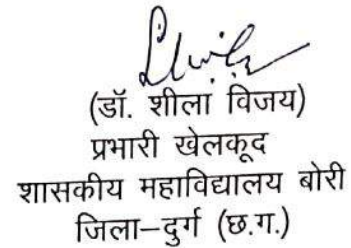 (डॉ. शीला विजय)
प्रभारी खेलकूद
शासकीय महाविद्यालय बोरी
जिला–दुर्ग (छ.ग.)